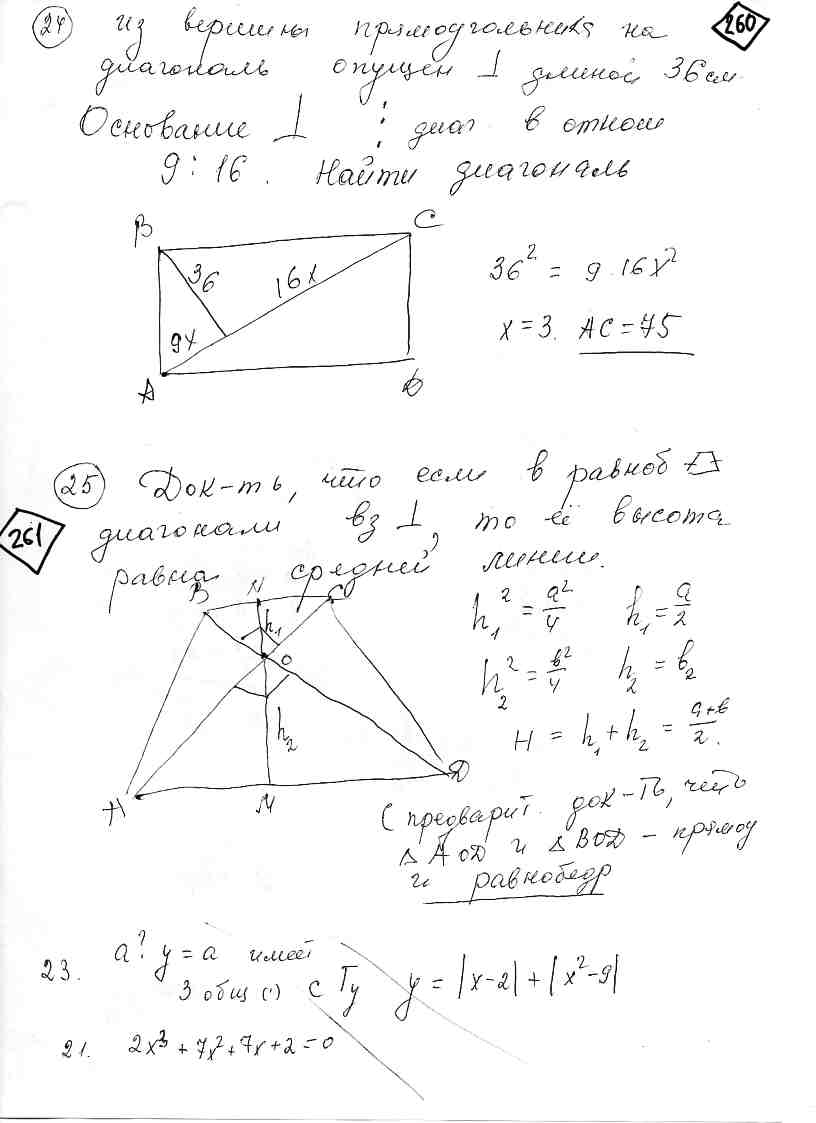 24 из вершины прямоугольника на
260
диагональ опущен ⊥ длиной 36 см
Основание ⊥ : диаг в отнош
9 : 16. Найти диагональ
B
C
36
16x
9x
A
D
36² = 9·16x²
x = 3. AC = 75
25 Док-ть, что если в равноб
261
диагонали вз ⊥, то её высота
равна средней линии.
B N C
h₁
O
h₂
A M D
h₁² = a²/4 h₁ = a/2
h₂² = b²/4 h₂ = b/2
H = h₁ + h₂ = (a+b)/2.
(предварит. док-ть, что
△AOD и △BOD – прямоу
и равнобедр
23. a? y = a имеет
3 общ (·) с Гy y = |x-2| + |x²-9|
21. 2x³ + 7x² + 7x + 2 = 0